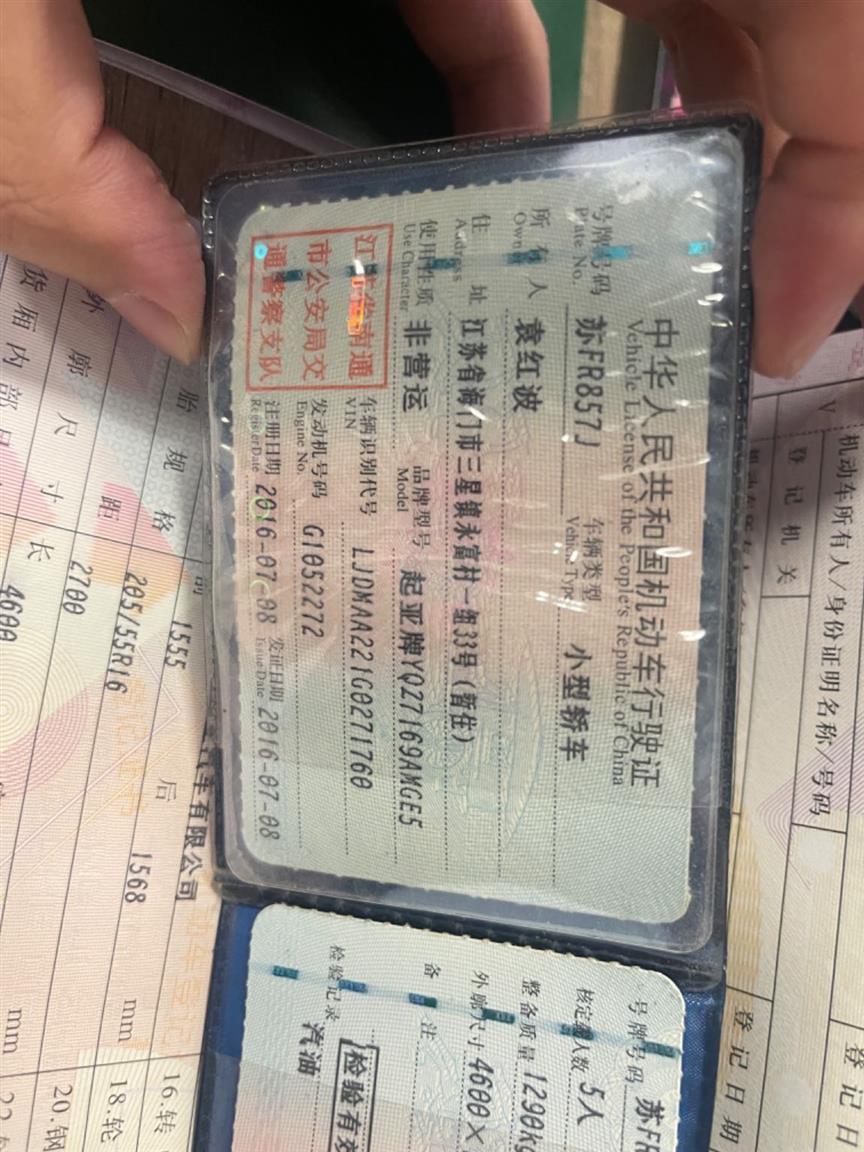 中华人民共和国机动车行驶证
Vehicle License of the People's Republic of China
号牌号码 苏FR857J 车辆类型 小型轿车
Plate No. Vehicle Type
所有人 袁红波
Owner
住址 江苏省海门市三星镇永富村一组33号(暂住)
Address
使用性质 非营运 品牌型号 起亚牌YQZ7169AMGE5
Use Character Model
江苏省南通
市公安局交
通警察支队
车辆识别代号 LJDMAA221G0271760
VIN
发动机号码 G1052272
Engine No.
注册日期 2016-07-08 发证日期 2016-07-08
Register Date Issue Date
号牌号码 苏FR
核定载人数 5人
整备质量 1290kg
外廓尺寸 4600×
备注
检验有效
检验记录 汽油
机动车所有人/身份证明名称/号码
登记机关
登记日期
登记日
汽车有限公司
前 1555 后 1568 mm
胎规格 205/55R16
距 2700 mm
外廓尺寸 长 4600
货厢内部尺
16.转
18.轮
20.钢
22.